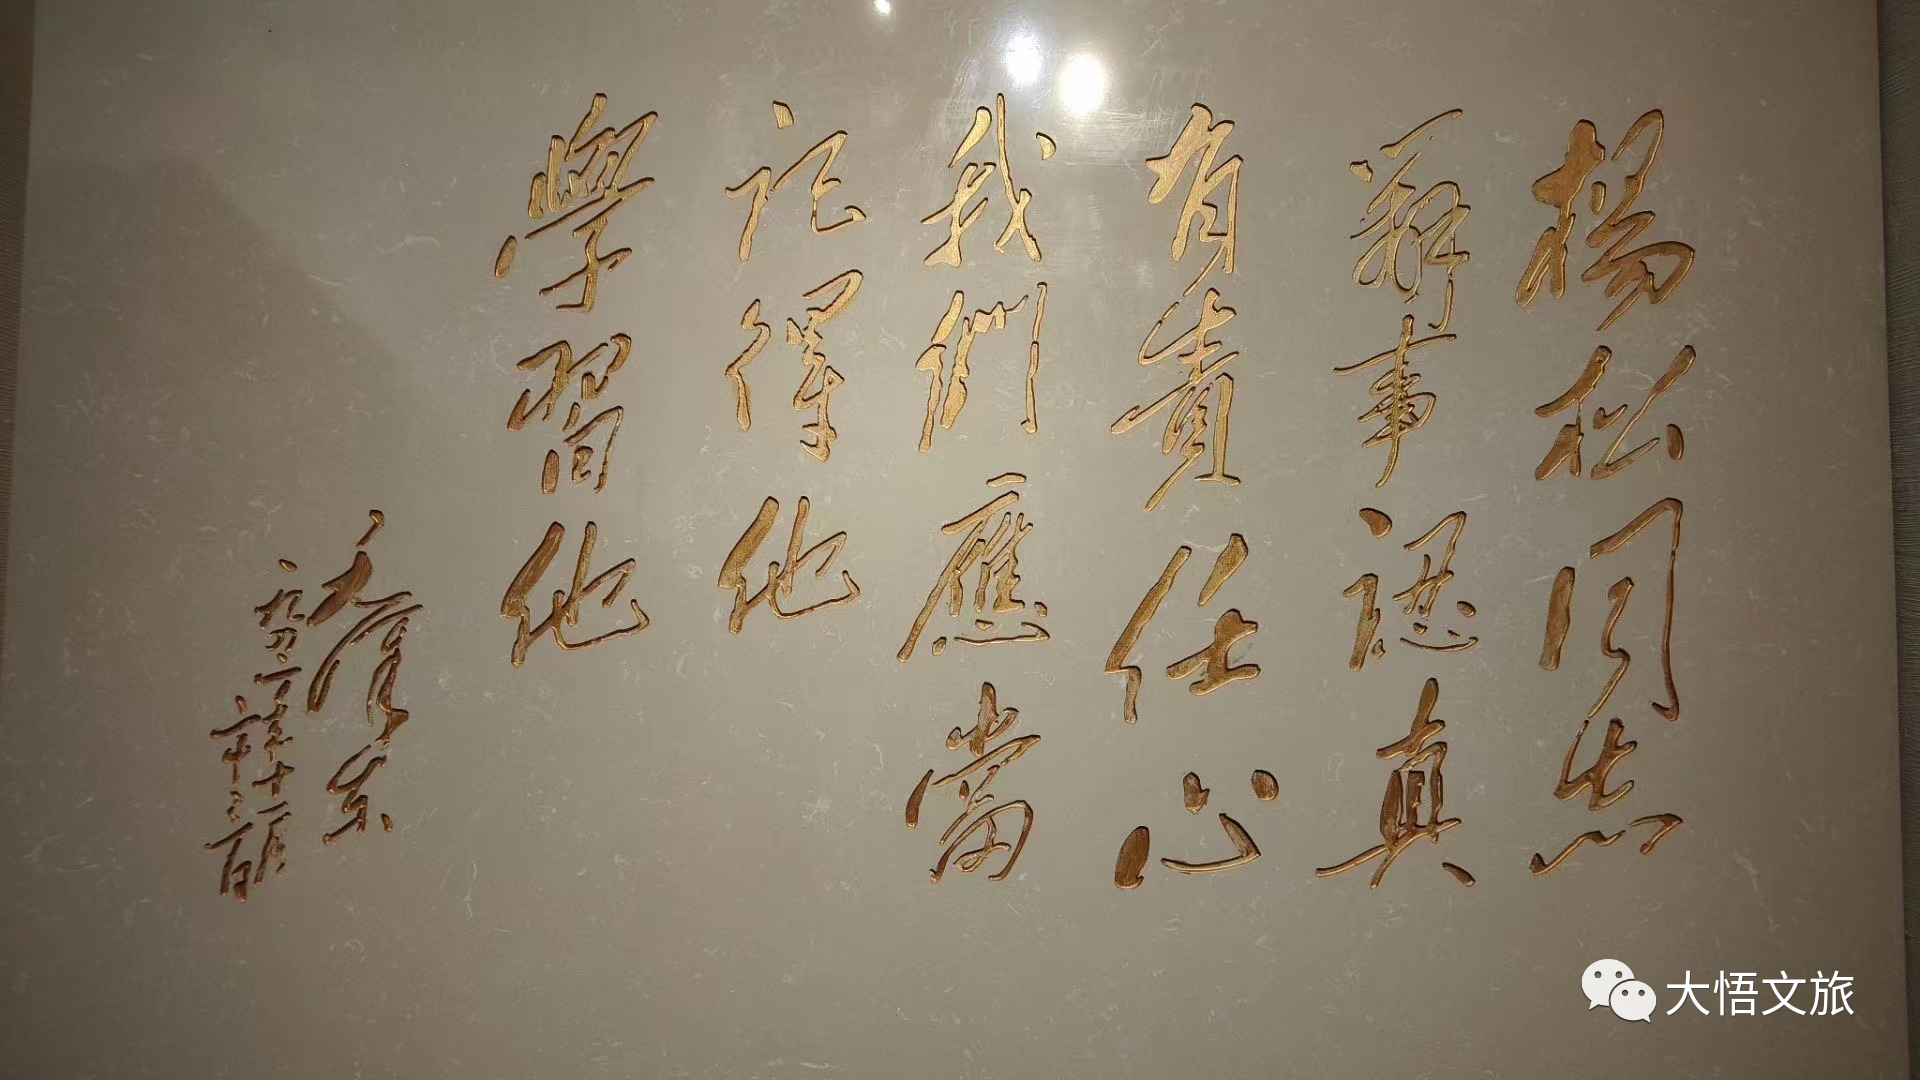 楊松同志
辦事認真
有責任心
我們應當
記得他
學習他
毛澤東
一九四二年十一月
二十三日
大悟文旅